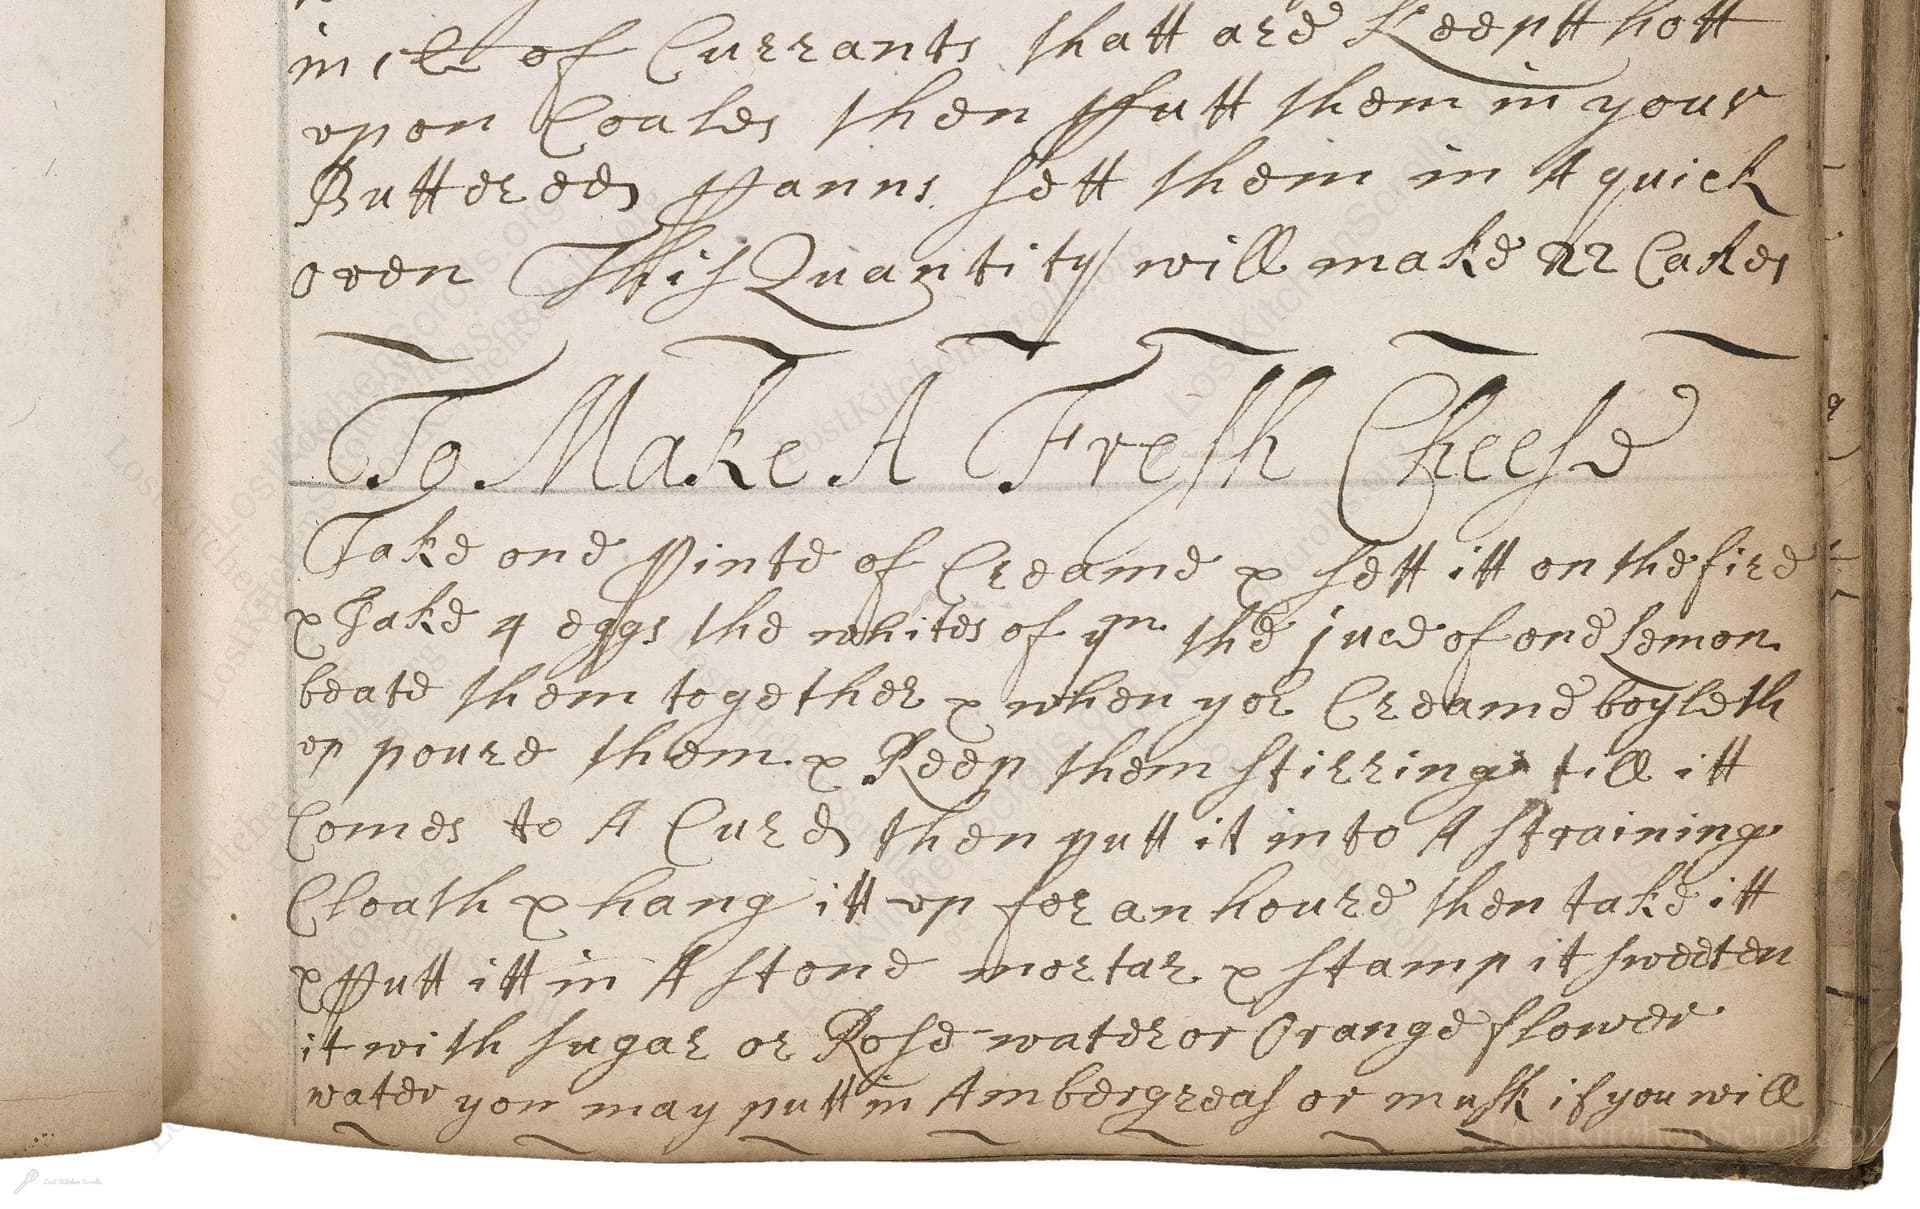 in 1 lb of Currants thatt are Keeptt hott
upon Coales then Putt them in your
Buttered panns sett them in A quick
oven This Quantity will make 22 Cakes
To Make A Fresh Cheese
Take one Pinte of Creame & sett itt on the fire
& Take 4 eggs the whites of ym the juce of one Lemon
beate them together & when yor Creame boyleth
up poure them & Keep them stirring till itt
Comes to A Curd then putt it into A straining
Cloath & hang itt up for an houre then take itt
& Putt itt in A stone mortar & stamp it sweeten
it with sugar or Rose-water or Orange flower
water you may putt in Ambergreas or musk if you will
LostKitchenScrolls.or
Lost Kitchen Scrolls